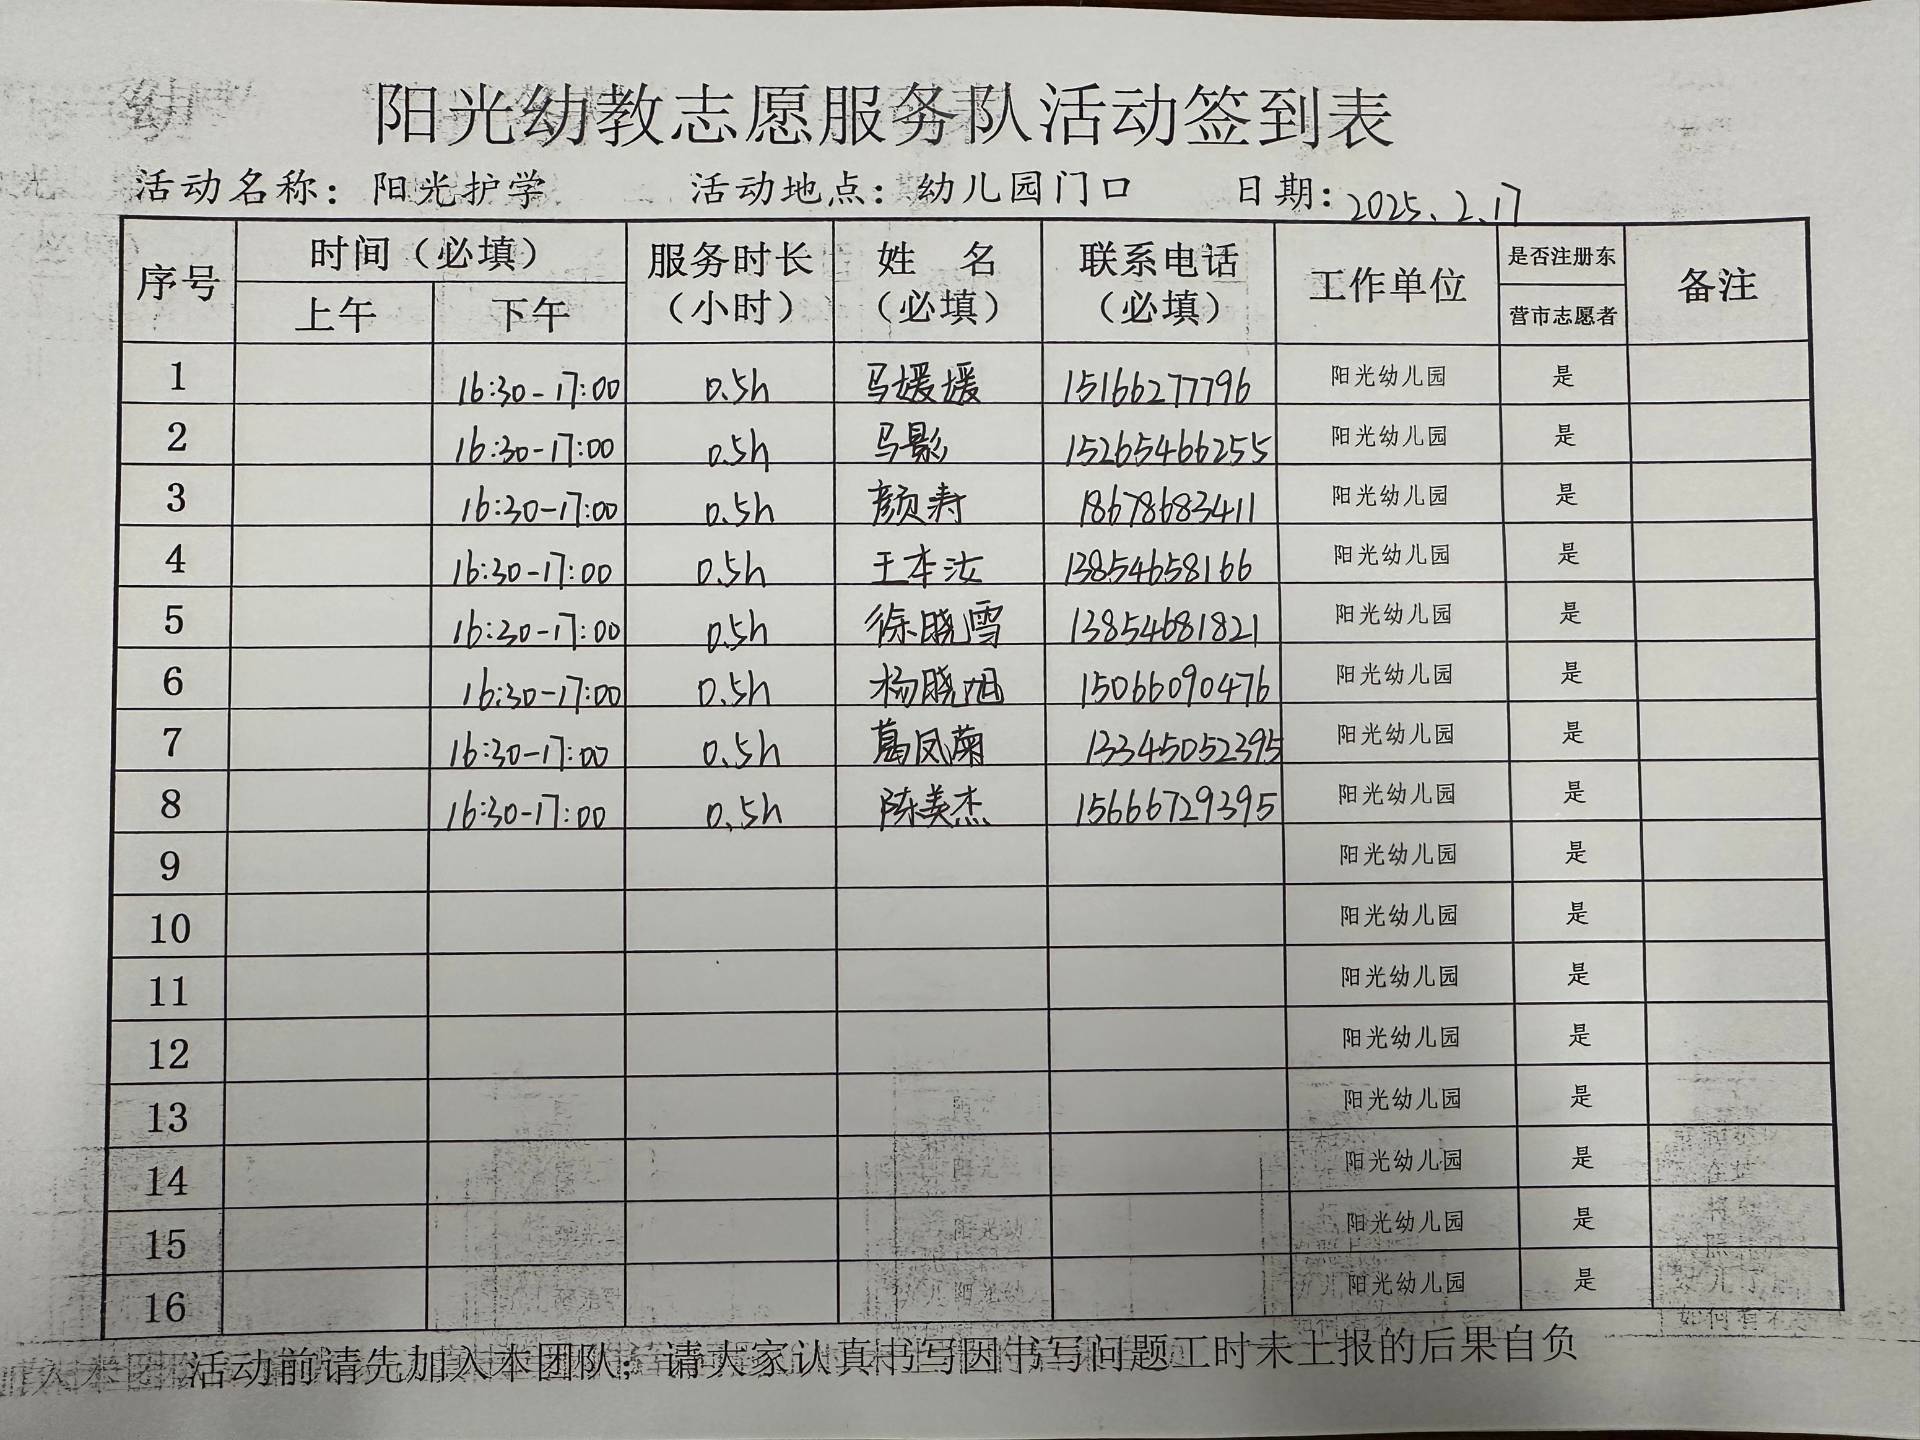 阳光幼教志愿服务队活动签到表
活动名称：阳光护学 活动地点：幼儿园门口 日期：2025.2.17
序号 时间（必填） 服务时长（小时） 姓 名（必填） 联系电话（必填） 工作单位 是否注册东营市志愿者 备注
上午 下午
1 16:30-17:00 0.5h 马媛媛 15166277796 阳光幼儿园 是
2 16:30-17:00 0.5h 马影 15265466255 阳光幼儿园 是
3 16:30-17:00 0.5h 颜寿 18678683411 阳光幼儿园 是
4 16:30-17:00 0.5h 王本汝 13854658166 阳光幼儿园 是
5 16:30-17:00 0.5h 徐晓雪 13854681821 阳光幼儿园 是
6 16:30-17:00 0.5h 杨晓旭 15066090476 阳光幼儿园 是
7 16:30-17:00 0.5h 葛凤菊 13345052395 阳光幼儿园 是
8 16:30-17:00 0.5h 陈美杰 15666729395 阳光幼儿园 是
9 阳光幼儿园 是
10 阳光幼儿园 是
11 阳光幼儿园 是
12 阳光幼儿园 是
13 阳光幼儿园 是
14 阳光幼儿园 是
15 阳光幼儿园 是
16 阳光幼儿园 是
活动前请先加入本团队；请大家认真书写因书写问题工时未上报的后果自负